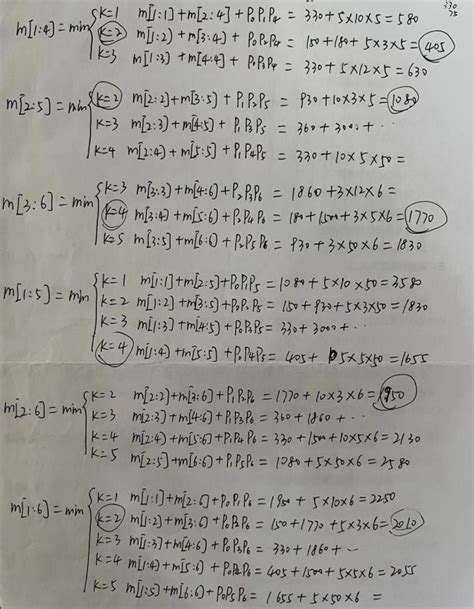 330
75
m[1:4] = min { k=1 m[1:1]+m[2:4]+P₀P₁P₄ = 330+5×10×5=580
k=2 m[1:2]+m[3:4]+P₀P₂P₄ = 150+180+5×3×5=405
k=3 m[1:3]+m[4:4]+P₀P₃P₄ = 330+5×12×5=630
m[2:5] = min { k=2 m[2:2]+m[3:5]+P₁P₂P₅ = 930+10×3×5=1080
k=3 m[2:3]+m[4:5]+P₁P₃P₅ = 360+3000+··
k=4 m[2:4]+m[5:5]+P₁P₄P₅ = 330+10×5×50=
m[3:6] = min { k=3 m[3:3]+m[4:6]+P₂P₃P₆ = 1860+3×12×6=
k=4 m[3:4]+m[5:6]+P₂P₄P₆ = 180+1500+3×5×6=1770
k=5 m[3:5]+m[6:6]+P₂P₅P₆ = 930+3×50×6=1830
m[1:5] = min { k=1 m[1:1]+m[2:5]+P₀P₁P₅ = 1080+5×10×50=3580
k=2 m[1:2]+m[3:5]+P₀P₂P₅ = 150+930+5×3×50=1830
k=3 m[1:3]+m[4:5]+P₀P₃P₅ = 330+3000+··
k=4 m[1:4]+m[5:5]+P₀P₄P₅ = 405+5×5×50=1655
m[2:6] = min { k=2 m[2:2]+m[3:6]+P₁P₂P₆ = 1770+10×3×6=1950
k=3 m[2:3]+m[4:6]+P₁P₃P₆ = 360+1860+··
k=4 m[2:4]+m[5:6]+P₁P₄P₆ = 330+1500+10×5×6=2130
k=5 m[2:5]+m[6:6]+P₁P₅P₆ = 1080+5×50×6=2580
m[1:6] = min { k=1 m[1:1]+m[2:6]+P₀P₁P₆ = 1950+5×10×6=2250
k=2 m[1:2]+m[3:6]+P₀P₂P₆ = 150+1770+5×3×6=2010
k=3 m[1:3]+m[4:6]+P₀P₃P₆ = 330+1860+··
k=4 m[1:4]+m[5:6]+P₀P₄P₆ = 405+1500+5×5×6=2055
k=5 m[1:5]+m[6:6]+P₀P₅P₆ = 1655+5×50×6 =